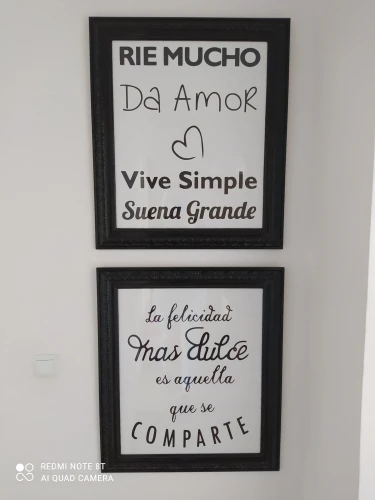 RIE MUCHO
Da AmoR
Vive Simple
Suena Grande
La felicidad
mas dulce
es aquella
que se
COMPARTE
REDMI NOTE 8T
AI QUAD CAMERA